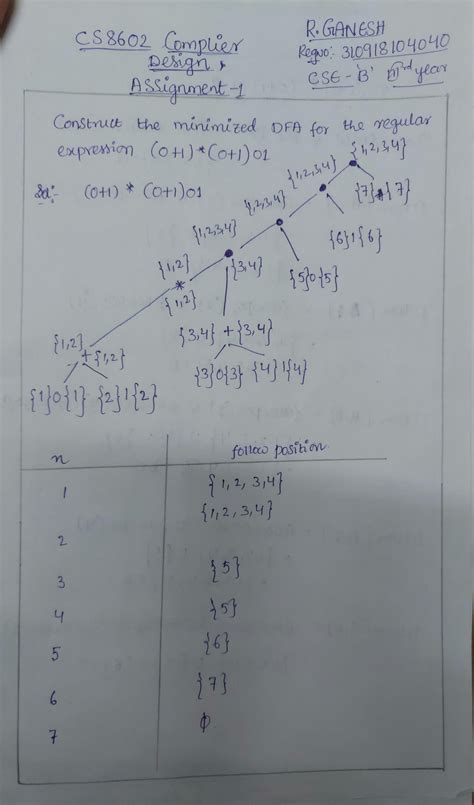 CS8602 Complier
Design
Assignment-1
R.GANESH
Regno: 310918104040
CSE-'B' IIIrd year
Construct the minimized DFA for the regular
expression (0+1)*(0+1)01
Sol:- (0+1) * (0+1)01
{1,2,3,4}
{1,2,3,4} {7}#{7}
{1,2,3,4} {6}1{6}
{1,2,3,4} {5}0{5}
{1,2} {3,4}
*
{1,2}
{1,2} {3,4} + {3,4}
+{1,2}
{3}0{3} {4}1{4}
{1}0{1} {2}1{2}
n follow position
1 {1,2,3,4}
{1,2,3,4}
2
3 {5}
4 {5}
5 {6}
6 {7}
7 ϕ